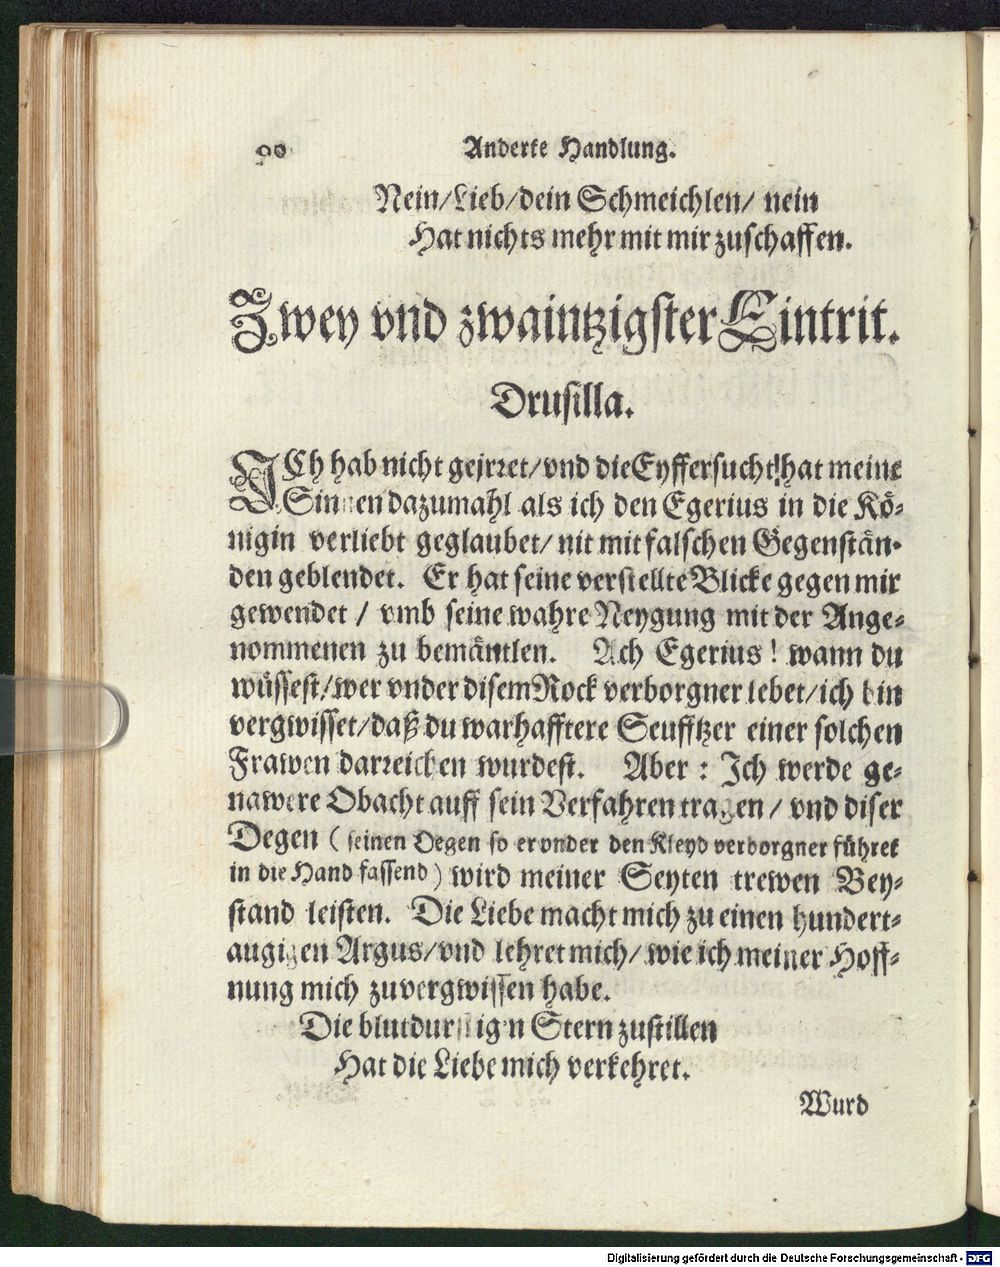 90 Anderte Handlung.
Nein/Lieb/dein Schmeichlen/ nein
Hat nichts mehr mit mir zuschaffen.
Zwey vnd zwaintzigster Eintrit.
Drusilla.
ICh hab nicht gejrret/vnd die Eyffersucht hat meine
Sinnen dazumahl als ich den Egerius in die Kö-
nigin verliebt geglaubet/ nit mit falschen Gegenstän-
den geblendet. Er hat seine verstellte Blicke gegen mir
gewendet / vmb seine wahre Neygung mit der Ange-
nommenen zu bemäntlen. Ach Egerius! wann du
wüssest/wer vnder disem Rock verborgner lebet/ich bin
vergwisset/daß du warhafftere Seufftzer einer solchen
Frawen darreichen wurdest. Aber: Ich werde ge-
nawere Obacht auff sein Verfahren tragen/ vnd diser
Degen ( seinen Degen so er vnder den Kleyd verborgner führet
in die Hand fassend) wird meiner Seyten trewen Bey-
stand leisten. Die Liebe macht mich zu einen hundert-
augigen Argus/vnd lehret mich/ wie ich meiner Hoff-
nung mich zuvergwissen habe.
Die blutdurstig'n Stern zustillen
Hat die Liebe mich verkehret.
Wurd
Digitalisierung gefördert durch die Deutsche Forschungsgemeinschaft - DFG